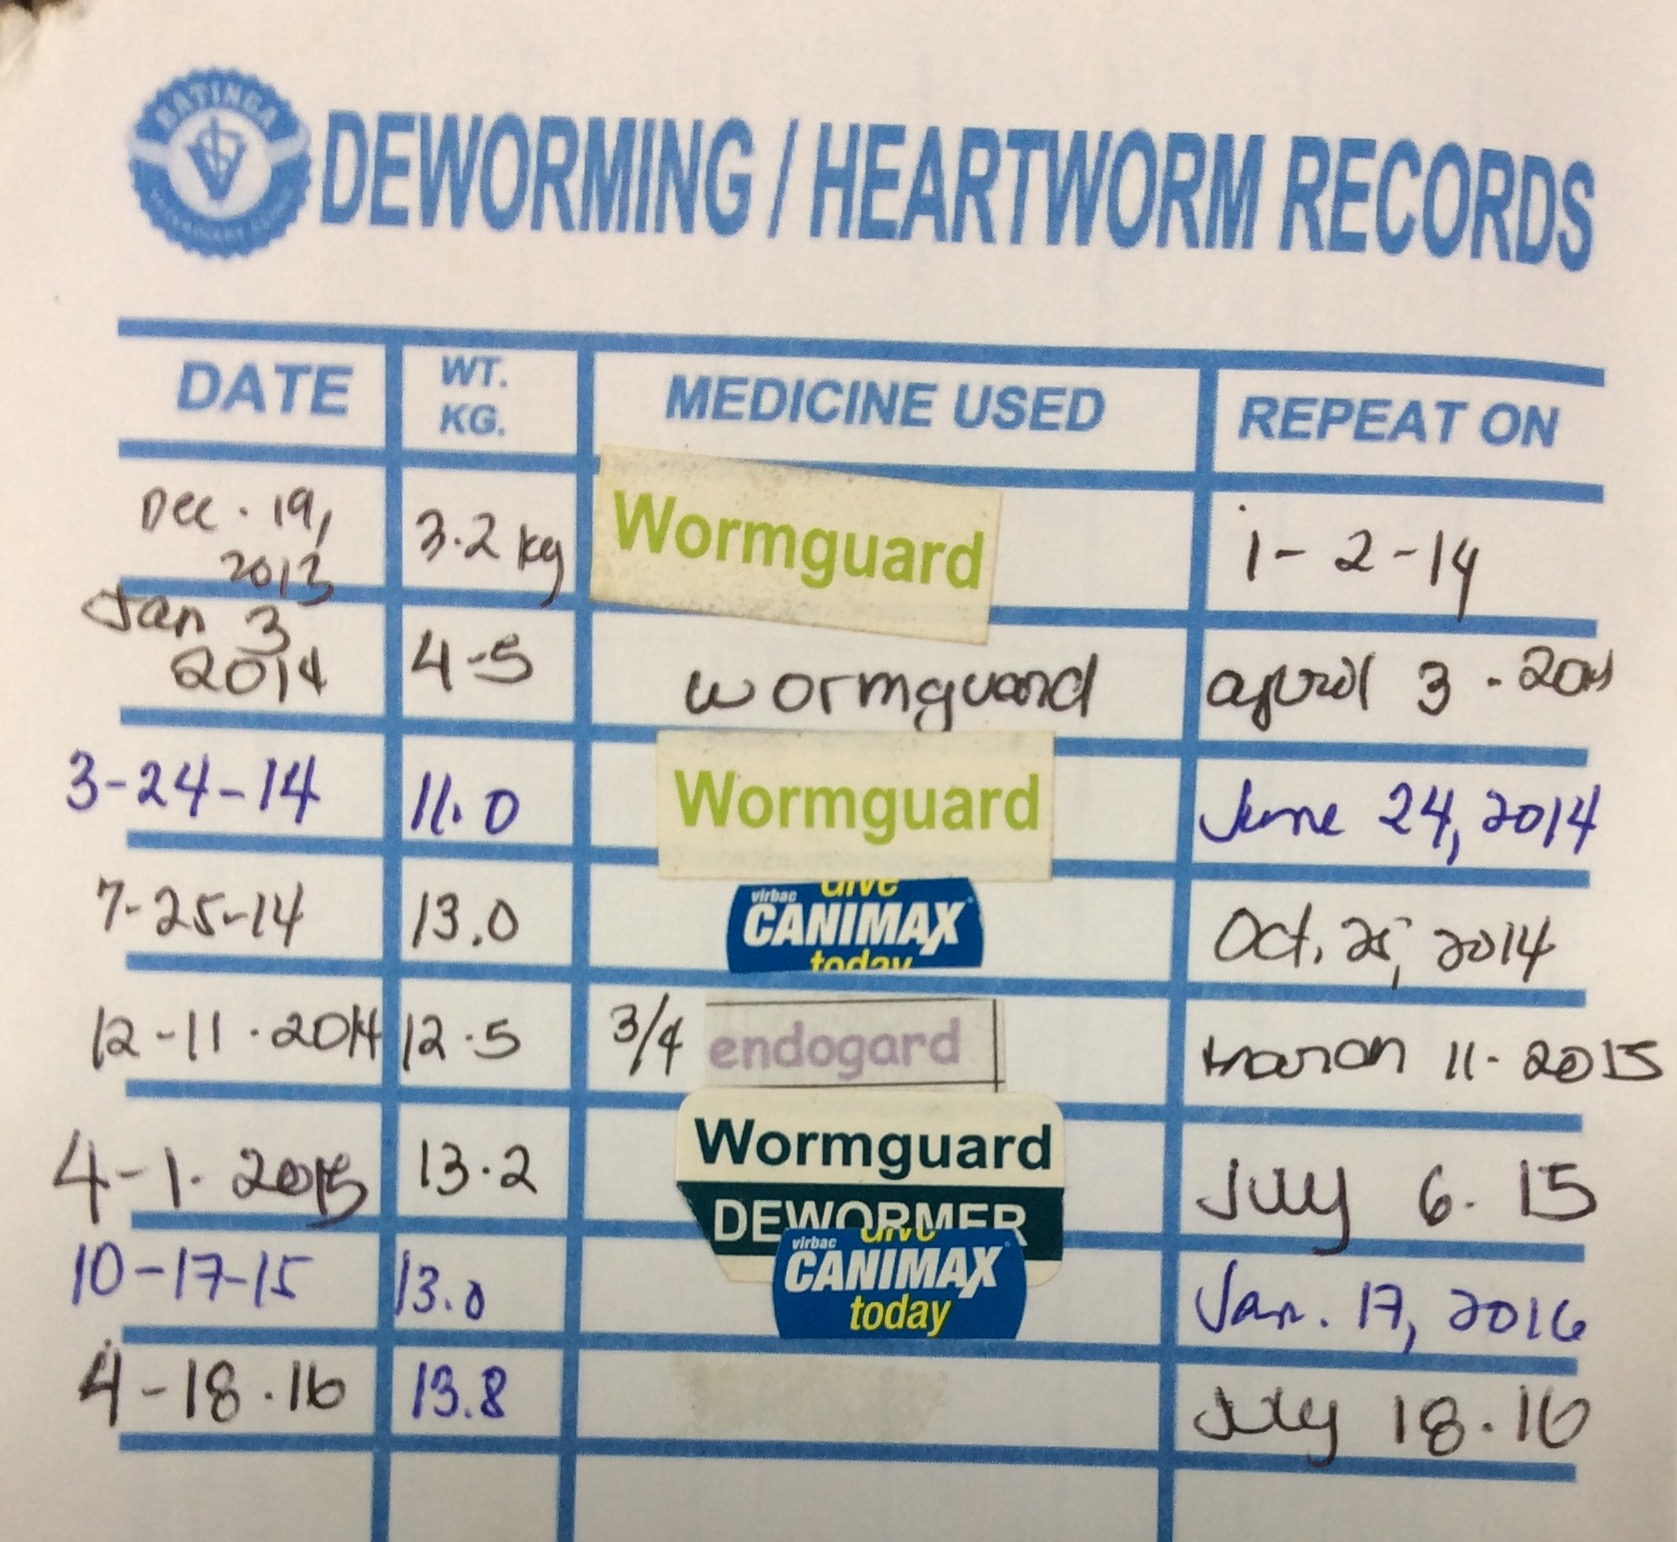 BATINGA
VETERINARY CLINIC
DEWORMING / HEARTWORM RECORDS
DATE WT. KG. MEDICINE USED REPEAT ON
Dec. 19, 2013 3.2 kg Wormguard 1-2-14
Jan 3 2014 4-5 wormguard april 3 - 2014
3-24-14 11.0 Wormguard June 24, 2014
7-25-14 13.0 virbac CANIMAX today Oct. 25, 2014
12-11-2014 12.5 3/4 endogard March 11-2015
4-1-2015 13.2 Wormguard DEWORMER July 6-15
10-17-15 13.0 virbac CANIMAX today Jan. 17, 2016
4-18-16 13.8 July 18-16